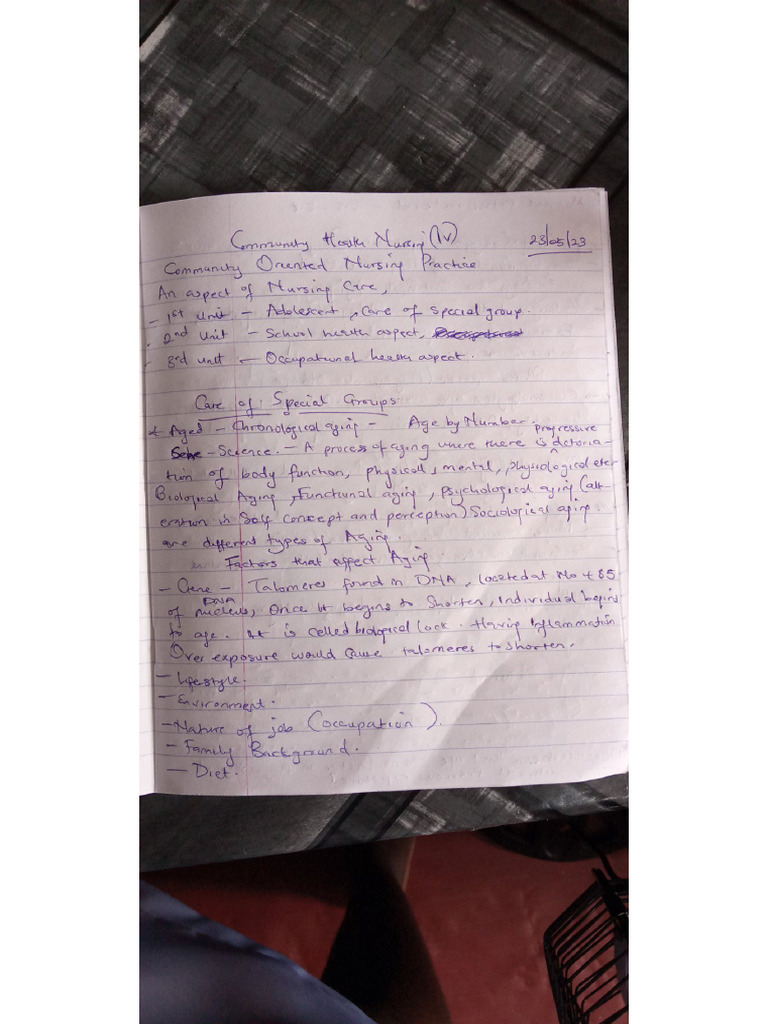 Community Health Nursing (IV) 23/05/23
Community Oriented Nursing Practice
An aspect of Nursing Care,
- 1st Unit - Adolescent, Care of special group.
- 2nd Unit - School health aspect,
- 3rd unit - Occupational health aspect.
Care of Special Groups
* Aged - Chronological aging - Age by Number.
progressive
- Science. - A process of aging where there is detoria-
tion of body function, physicall, mental, physiological etc
Biological Aging, Functional aging, psychological aging (alt-
eration in Self concept and perception) Sociological aging.
are different types of Aging.
Factors that affect Aging
- Gene - Talomeres found in DNA, located at No 4 85
DNA
of nucleus, Once it begins to Shorten, individual begins
to age. It is called biological lock. Having inflammation
Over exposure would cause talomeres to shorten.
- Lifestyle.
- Environment.
- Nature of job (occupation).
- Family Background.
- Diet.